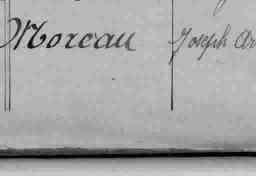 Moreau Joseph Ar